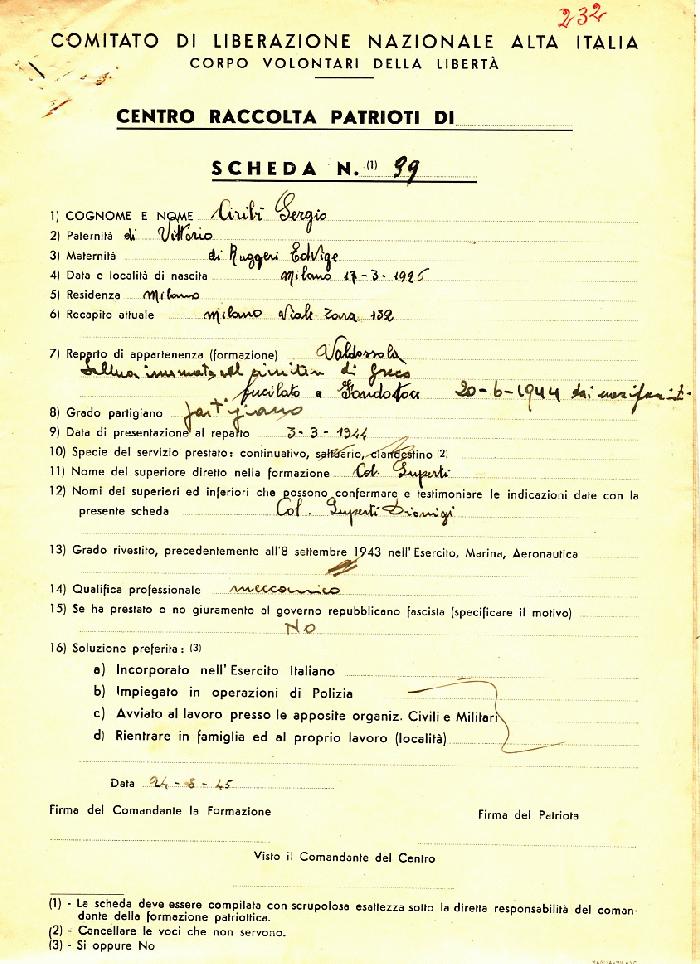 232
COMITATO DI LIBERAZIONE NAZIONALE ALTA ITALIA
CORPO VOLONTARI DELLA LIBERTÀ
CENTRO RACCOLTA PATRIOTI DI
SCHEDA N. (1) 99
1) COGNOME E NOME Ciribi Sergio
2) Paternità di Vittorio
3) Maternità di Ruggeri Edvige
4) Data e località di nascita Milano 17-3-1925
5) Residenza Milano
6) Recapito attuale Milano Viale Zara 132
7) Reparto di appartenenza (formazione) Valdossola
Salma di Greco
fucilato a Fondotoce 20-6-1944 dai
8) Grado partigiano partigiano
9) Data di presentazione al reparto 3-3-1944
10) Specie del servizio prestato: continuativo, saltuario, clandestino (2)
11) Nome del superiore diretto nella formazione Col. Superti
12) Nomi dei superiori ed inferiori che possono confermare e testimoniare le indicazioni date con la
presente scheda Col. Superti Dionigi
13) Grado rivestito, precedentemente all'8 settembre 1943 nell'Esercito, Marina, Aeronautica
14) Qualifica professionale meccanico
15) Se ha prestato o no giuramento al governo repubblicano fascista (specificare il motivo)
No
16) Soluzione preferita: (3)
a) Incorporato nell'Esercito Italiano
b) Impiegato in operazioni di Polizia
c) Avviato al lavoro presso le apposite organiz. Civili e Militari
d) Rientrare in famiglia ed al proprio lavoro (località)
Data 24-8-45
Firma del Comandante la Formazione Firma del Patriota
Visto il Comandante del Centro
(1) - La scheda deve essere compilata con scrupolosa esattezza sotto la diretta responsabilità del coman-
dante della formazione patriottica.
(2) - Cancellare le voci che non servono.
(3) - Si oppure No